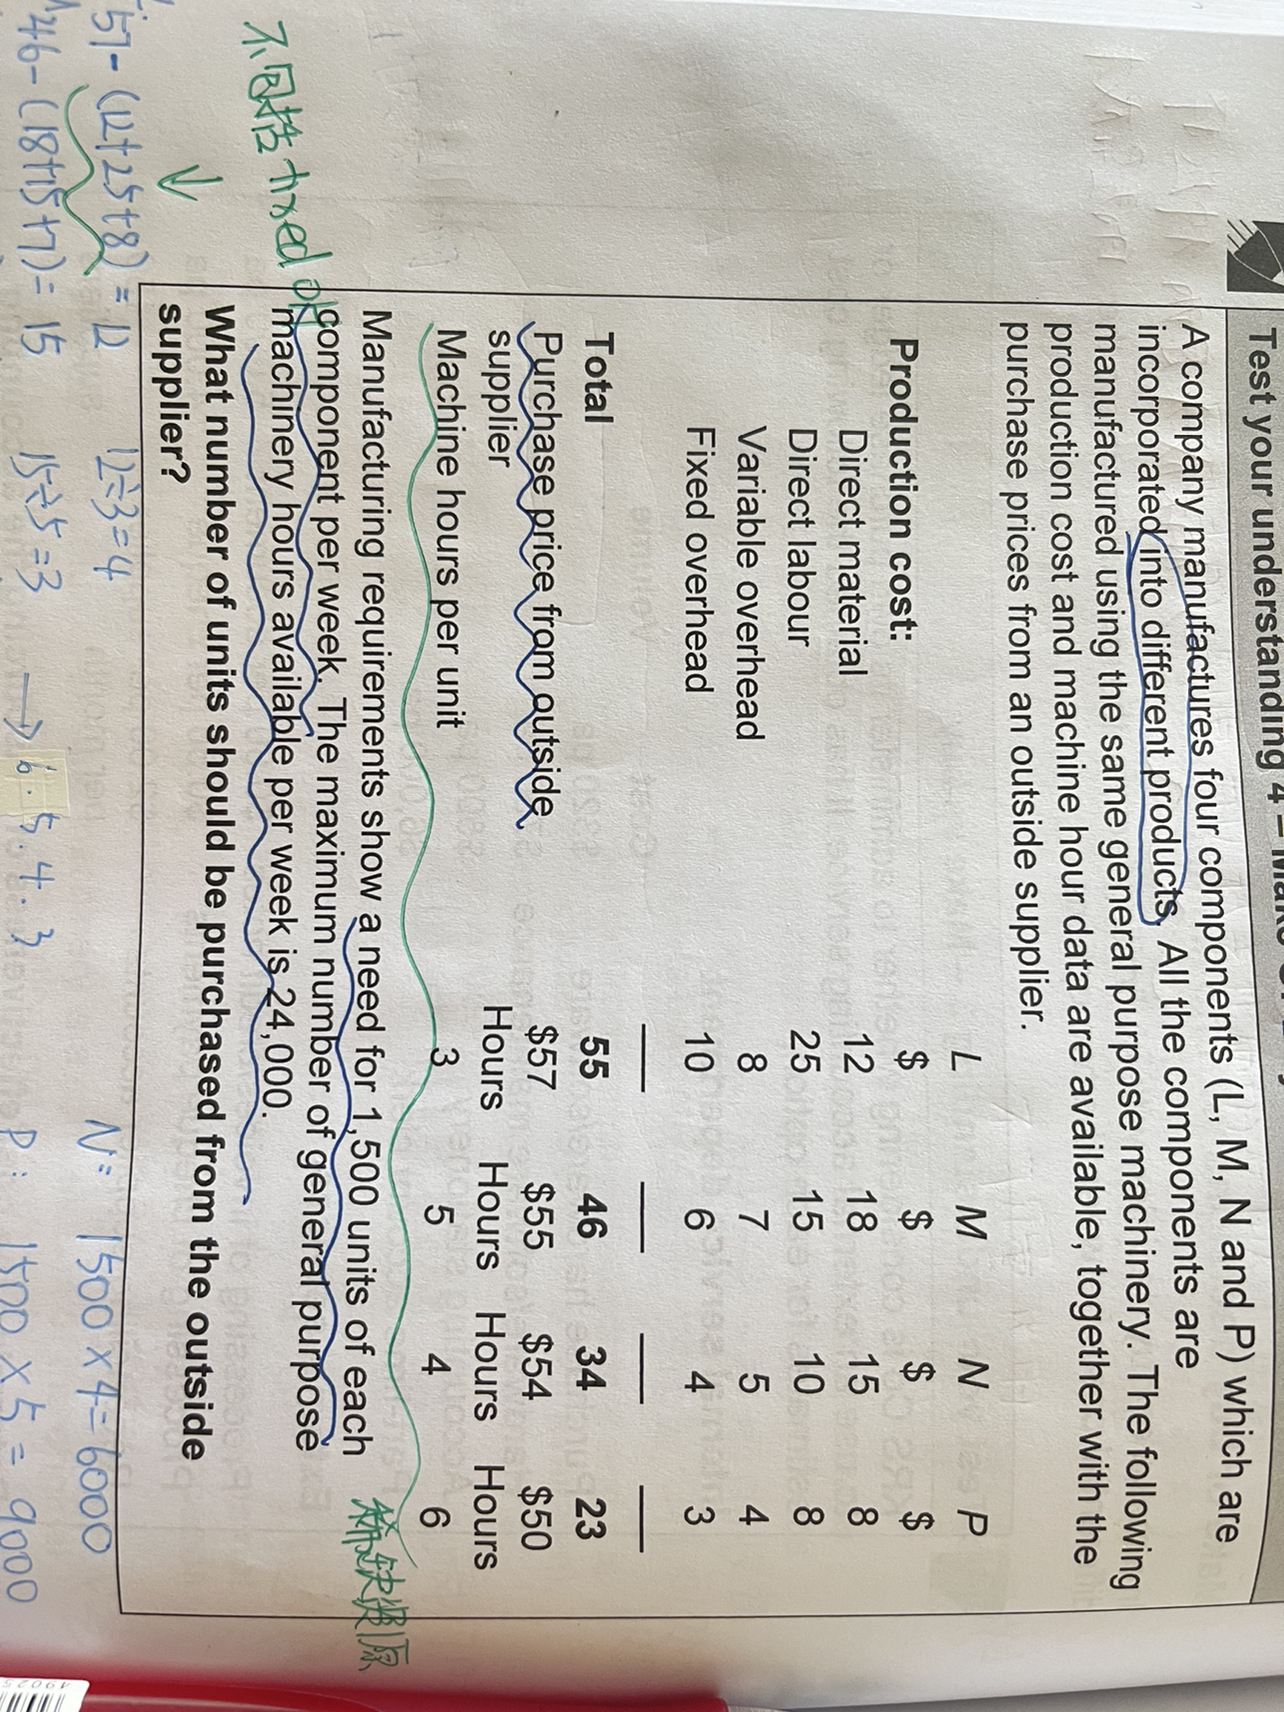 Test your understanding 4 –
A company manufactures four components (L, M, N and P) which are
incorporated into different products. All the components are
manufactured using the same general purpose machinery. The following
production cost and machine hour data are available, together with the
purchase prices from an outside supplier.
L M N P
Production cost: $ $ $ $
Direct material 12 18 15 8
Direct labour 25 15 10 8
Variable overhead 8 7 5 4
Fixed overhead 10 6 4 3
Total 55 46 34 23
Purchase price from outside $57 $55 $54 $50
supplier Hours Hours Hours Hours
Machine hours per unit 3 5 4 6
稀缺资源
Manufacturing requirements show a need for 1,500 units of each
component per week. The maximum number of general purpose
machinery hours available per week is 24,000.
What number of units should be purchased from the outside
supplier?
不包括 fixed OH
57-(12+25+8)=12 12÷3=4 N= 1500×4=6000
46-(18+15+7)=15 15÷5=3 → 6.5.4.3 P: 1500×5=9000